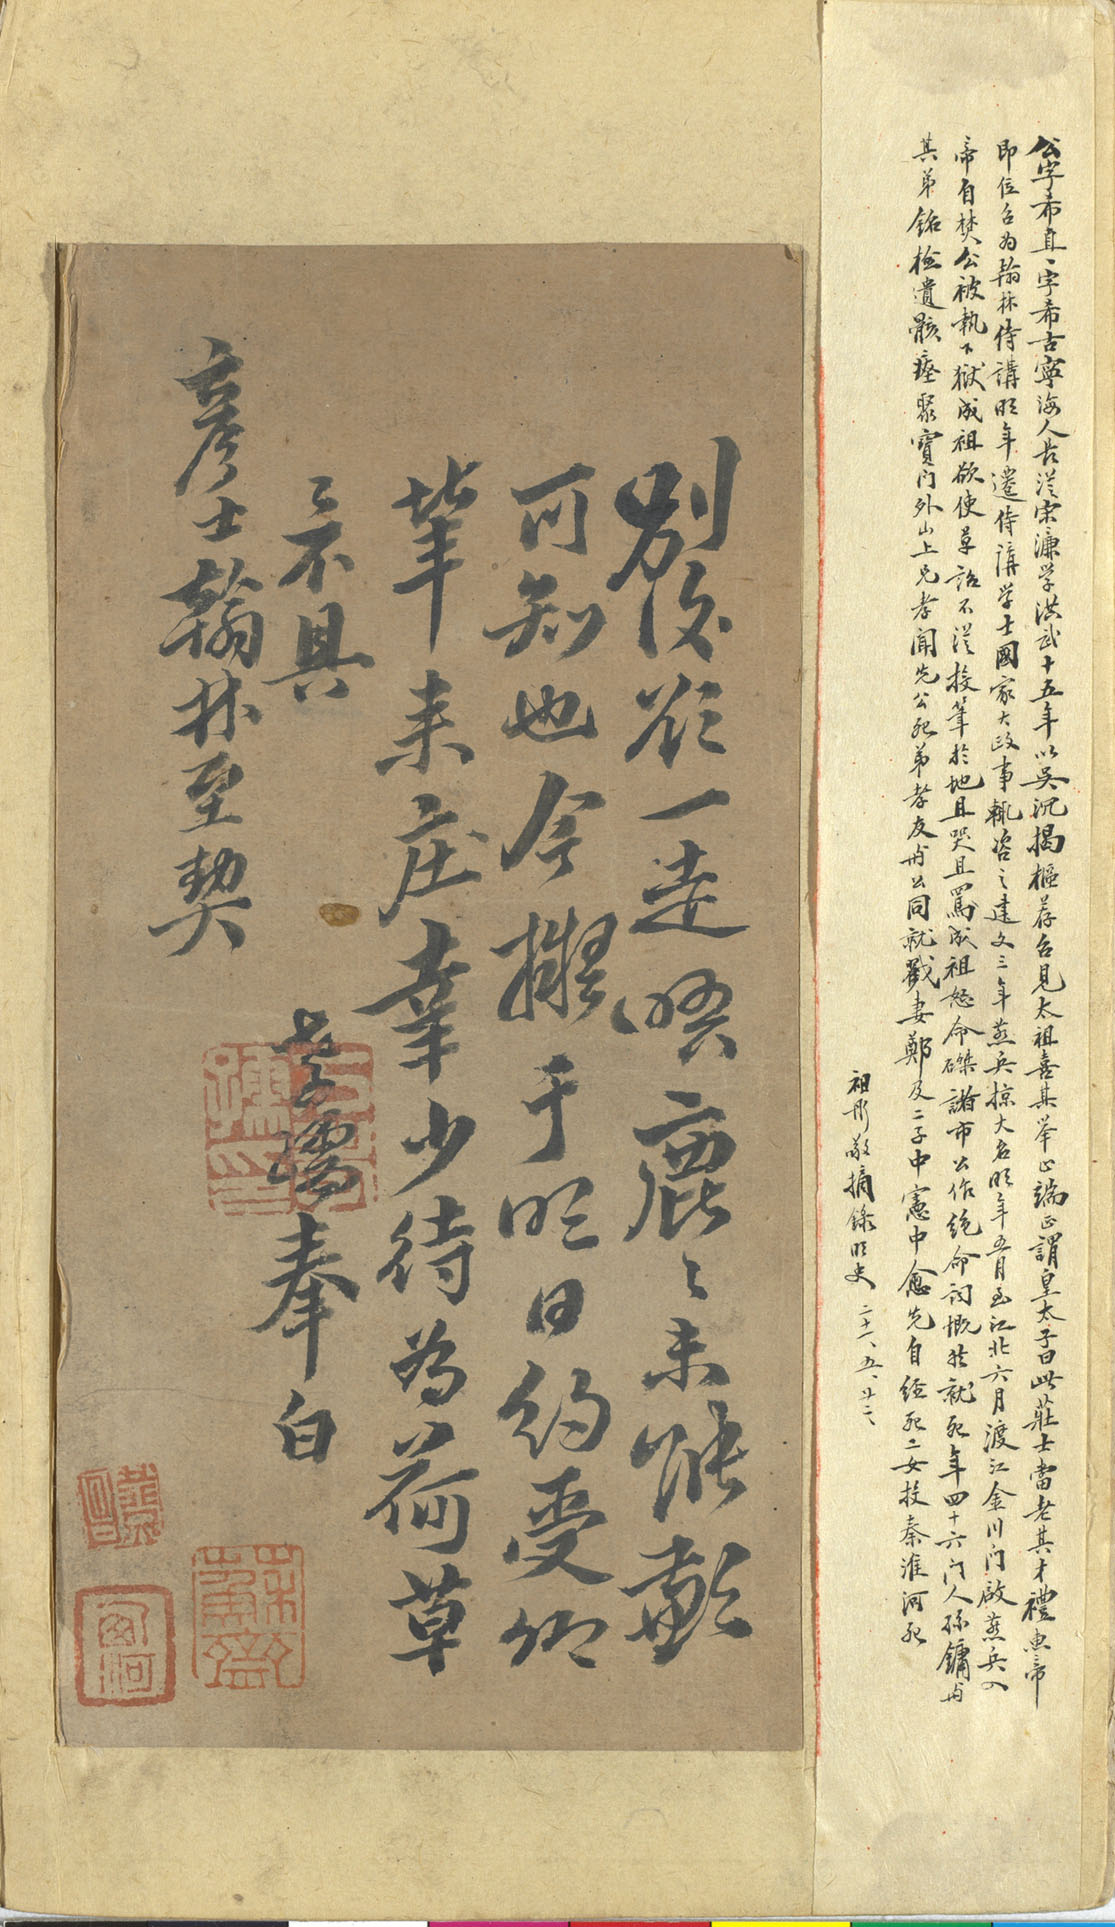 公字希直一字希古寧海人長從宋濂學洪武十五年以吳沉揭樞荐召見太祖喜其舉止端正謂皇太子曰此莊士當老其才禮 惠帝
即位召为翰林侍講明年遷侍講学士國家大政事輒咨之建文三年燕兵掠大名明年五月至江北六月渡江金川门啟燕兵入
帝自焚公被執下獄成祖欲使草詔不從投筆於地且哭且罵成祖怒命磔諸市公作绝命词慨然就死年四十六门人孫鏞与
其弟銘检遺骸瘞聚寶门外山上兄孝聞先公死弟孝友与公同就戮妻鄭及二子中憲中愈先自经死二女投秦淮河死
祖彤敬摘錄明史 二十八、五、廿二、
别後欲一走晤鹿鹿未能歉
可知也今擬于明日约受卿
筆来庄幸少待为荷草
草不具
孝孺奉白
彦士翰林至契